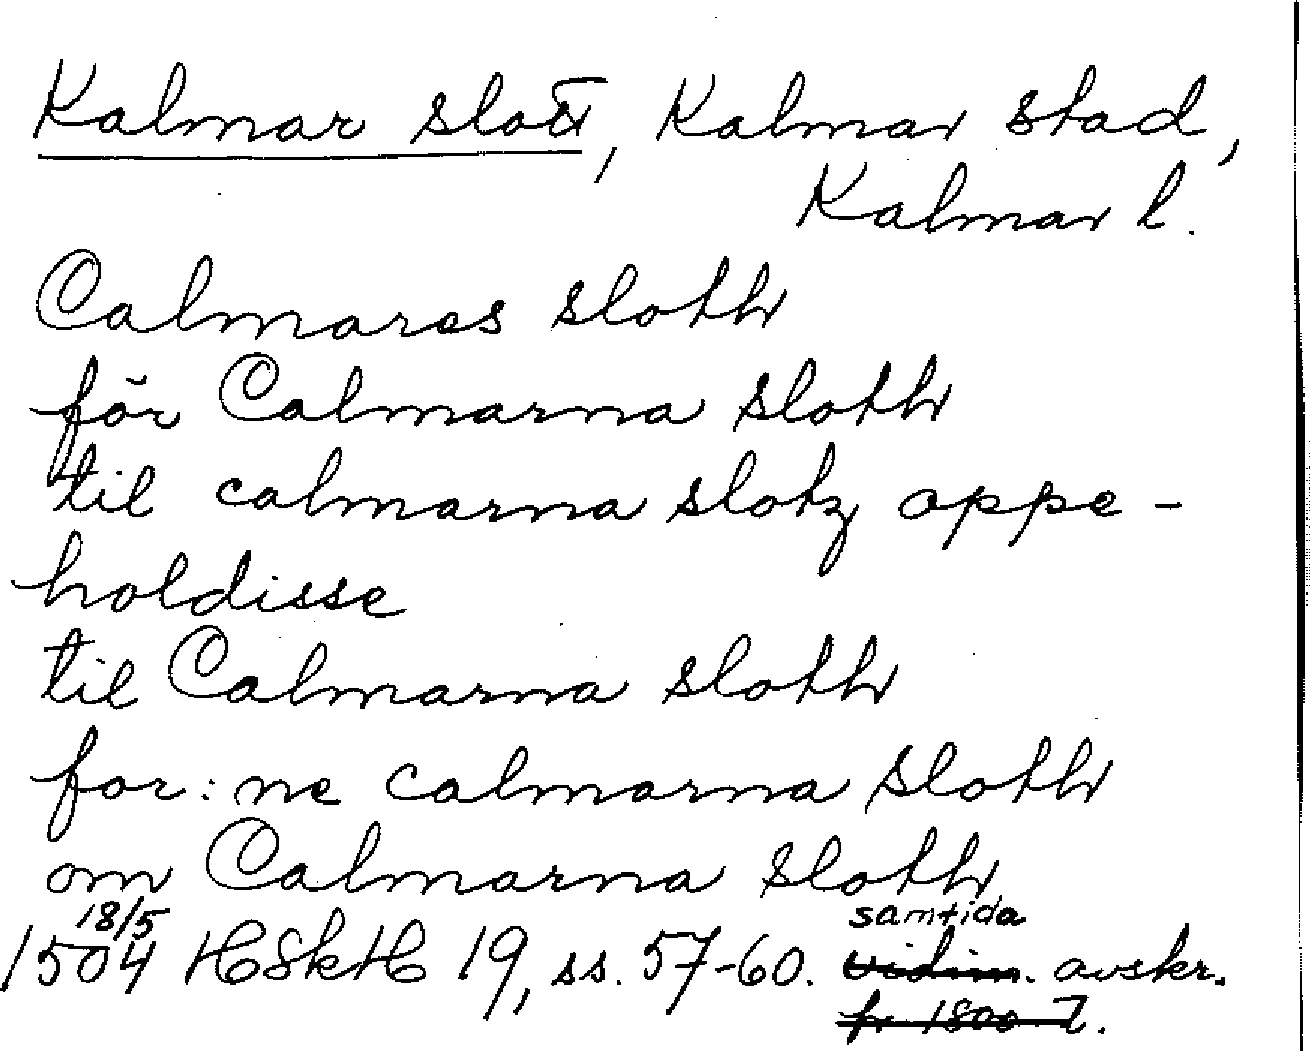 Kalmar slott, Kalmar stad,
Kalmar l.
Calmares sloth
för Calmarna sloth
til calmarna slotz oppe-
holdisse
til Calmarna sloth
for: ne calmarna sloth
om Calmarna sloth
18/5 samtida
1504 HSkH 19, ss. 57-60. vidim. avskr.
fr 1800-t.